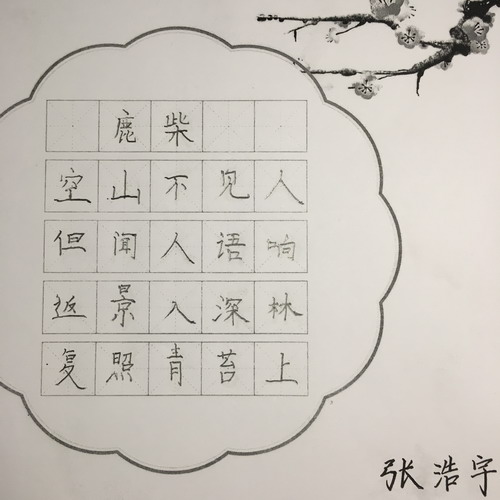 鹿柴
空山不见人
但闻人语响
返景入深林
复照青苔上
张浩宇